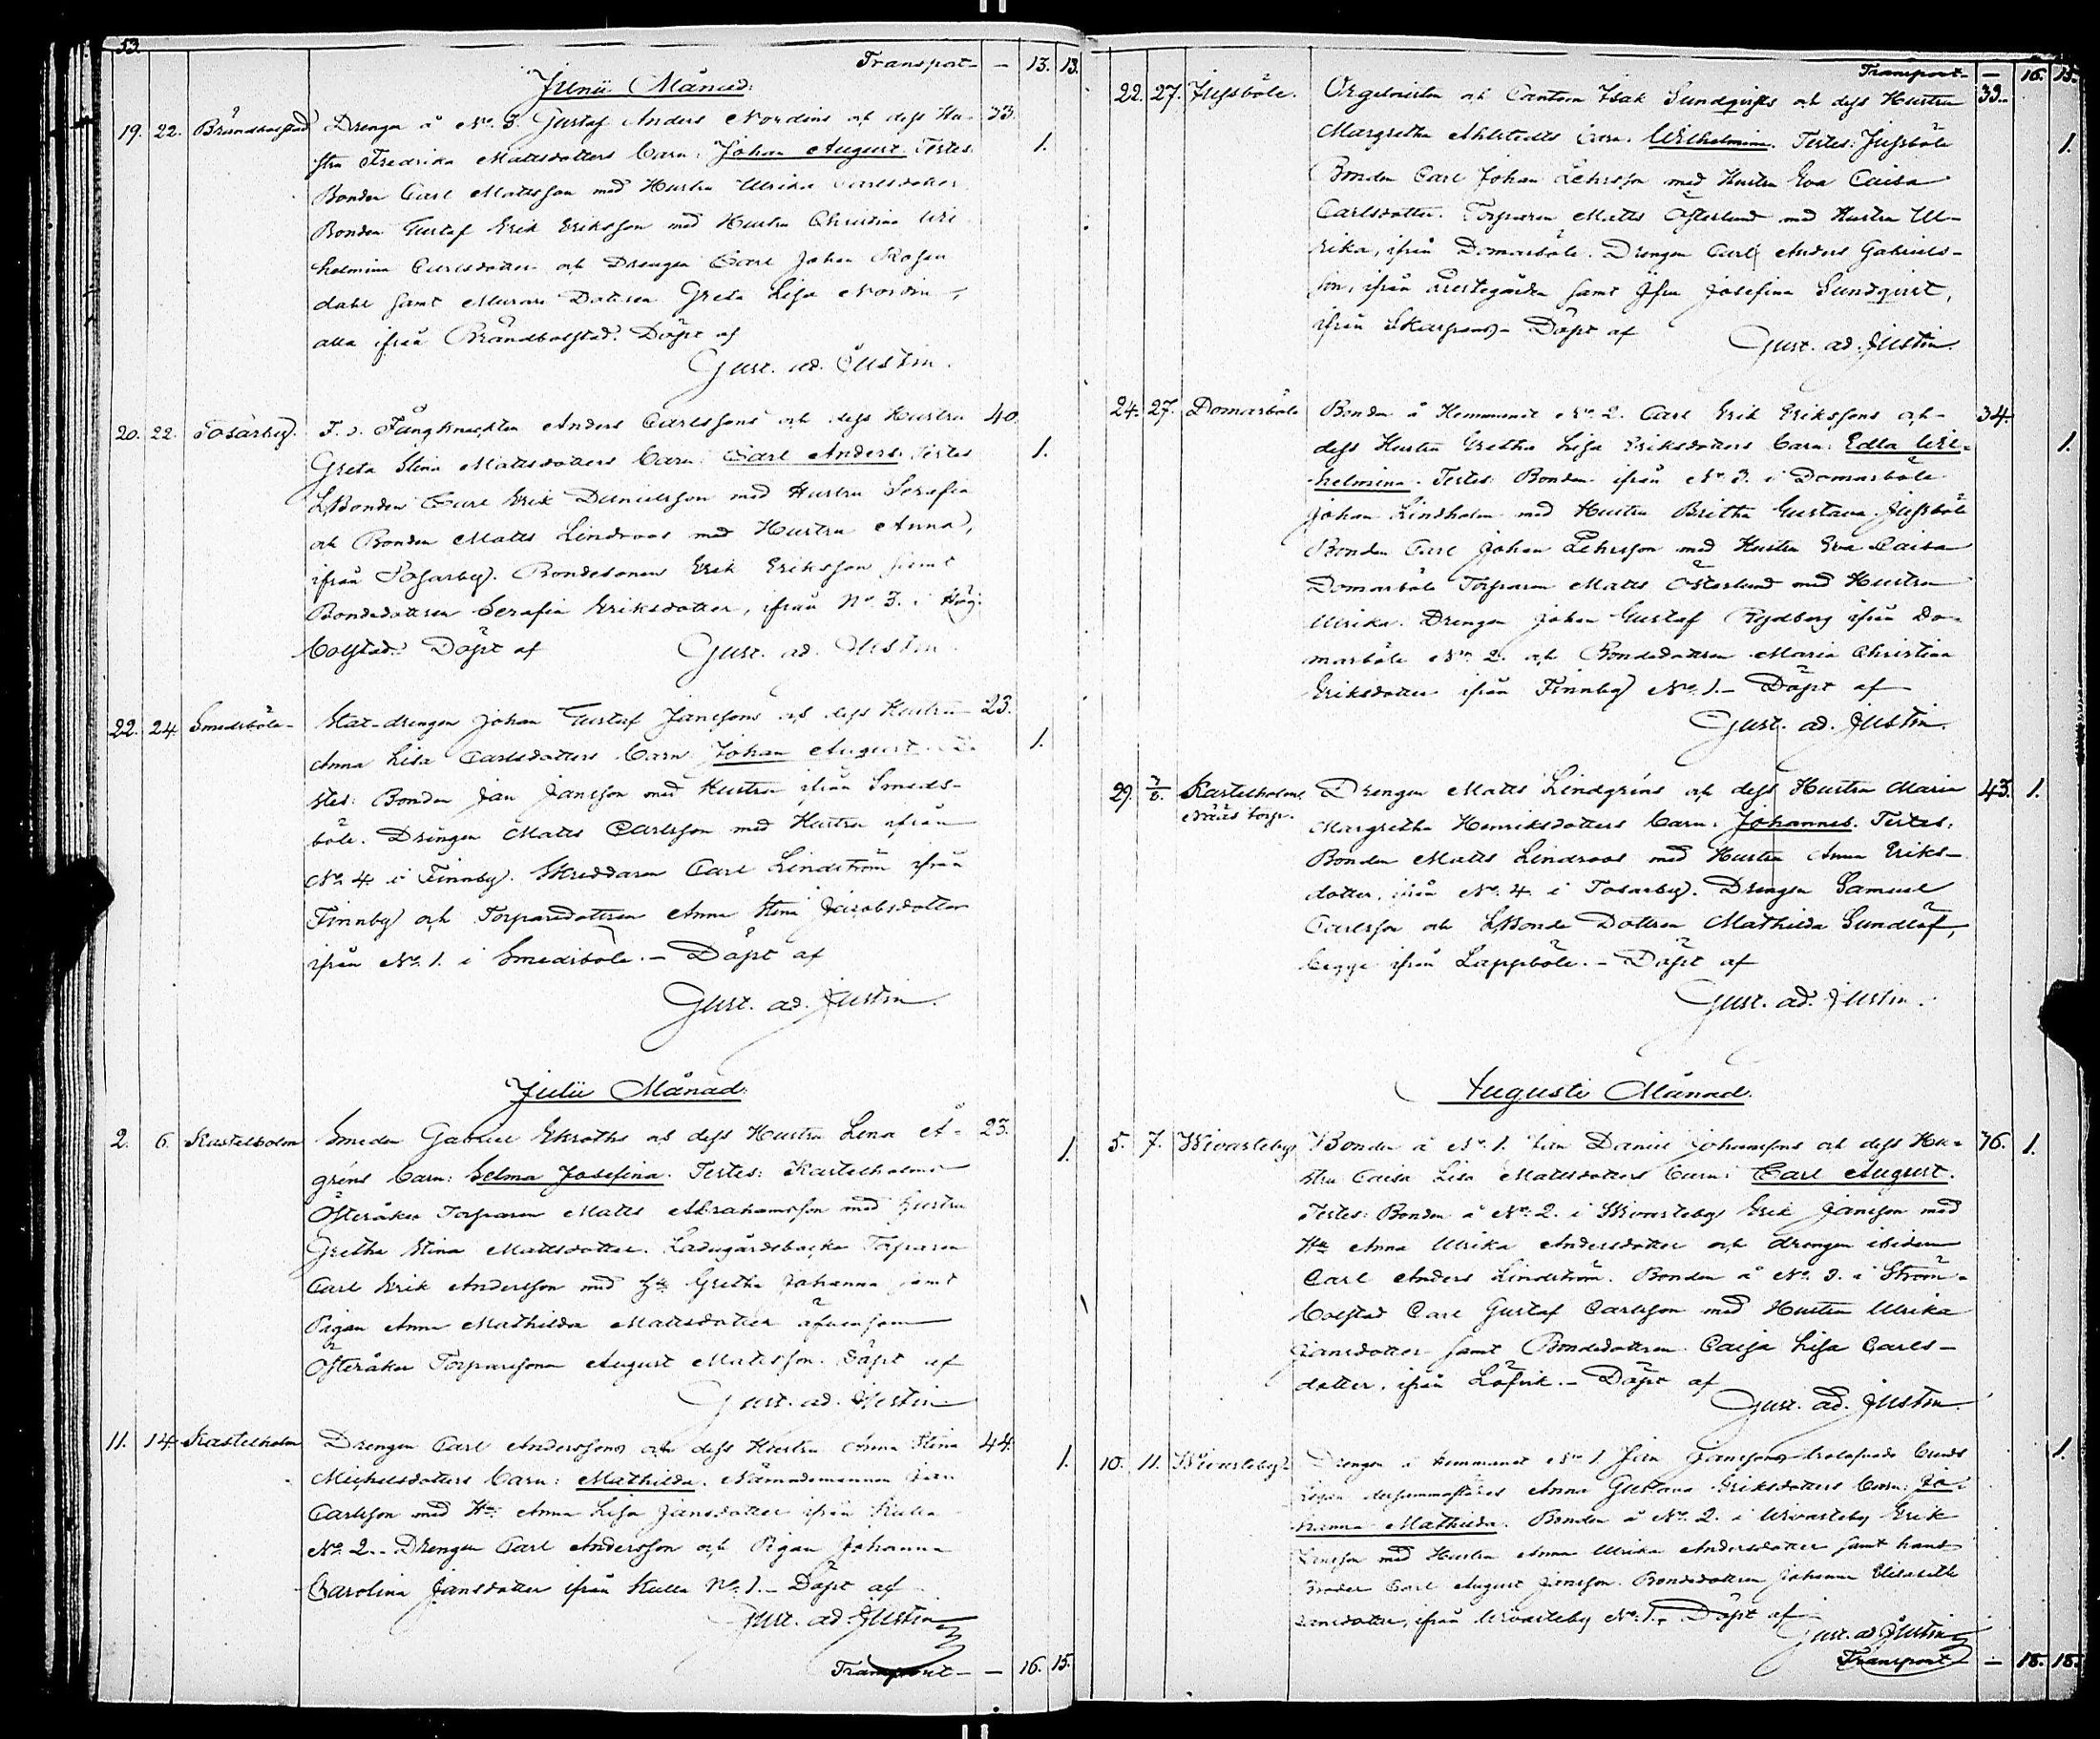 53.
Transport — 13. 13.
Junii Månad.
19. 22. Brändbolstad Drengen å No. 3. Gustaf Anders Nordins och dess Hu- 33.
stru Fredrika Mattsdotters barn: Johan August. Testes: 1.
Bonden Carl Mattsson med Hustru Ulrika Carlsdotter
Bonden Gustaf Erik Eriksson med Hustru Christina Wil-
helmina Carlsdotter och Drengen Carl Johan Rosen
dahl samt Murare Dottren Greta Lisa Nordin,
alla ifrån Brändbolstad. Döpt af
Gust. ad. Justin.
20. 22. Tosarby. F. d. Fångknekten Anders Carlssons och dess Hustru 40.
Greta Stina Mattsdotters barn: Carl Anders. Testes 1.
LBonden Carl Erik Danielsson med Hustru Serafia
och Bonden Matts Lindroos med Hustru Anna,
ifrån Tosarby. Bondesonen Erik Eriksson samt
Bondedottren Serafia Eriksdotter, ifrån No. 3. i Hög-
bolstad. Döpt af Gust. ad. Justin.
22. 24. Smedsböle Stat-drengen Johan Gustaf Janssons och dess Hustru 23.
Anna Lisa Carlsdotters barn Johan August. Te- 1.
stes: Bonden Jan Jansson med Hustru ifrån Smeds-
böle. Drengen Matts Carlsson med Hustru ifrån
No. 4 i Finnby. Skreddaren Carl Lindström ifrån
Finnby och Torparedottren Anna Stina Jacobsdotter
ifrån No. 1. i Smedsböle. – Döpt af
Gust. ad. Justin.
Julii Månad.
2. 6. Kastelholm Smeden Gabriel Ekroths och dess Hustru Lena Å- 23.
gréns barn: Selma Josefina. Testes: Kastelholms 1.
Österåker Torparen Matts Abrahamsson med Hustru
Gretha Stina Mattsdotter. Ladugårdsbacka Torparen
Carl Erik Andersson med Hu Gretha Johanna samt
Pigan Anna Mathilda Mattsdotter äfvensom
Österåker Torparesonen August Mattsson. Döpt af
Gust. ad. Justin.
11. 14. Kastelholm Drengen Carl Anderssons och dess Hustru Anna Stina 44.
Michelsdotters barn: Mathilda. Nämndemannen Jan 1.
Carlsson med Hu Anna Lisa Jansdotter ifrån Kulla
No. 2. Drengen Carl Andersson och Pigan Johanna
Carolina Jansdotter ifrån Kulla No. 1. – Döpt af
Gust. ad. Justin
Transport — 16. 15.
Transport — 16. 15.
22. 27. Jussböle. Orgelnisten och Cantorn Isak Sundqvists och dess Hustru 39.
Margretha Ahlstedts barn. Wilhelmina. Testes: Jussböle 1.
Bonden Carl Johan Lehrsson med Hustru Eva Caisa
Carlsdotter. Torparen Matts Österlund med Hustru Ul-
rika, ifrån Domarböle. Drengen Carl Anders Gabriels-
son, ifrån Prestegården samt Jfru Josefina Sundqvist,
ifrån Skarpans – Döpt af
Gust. ad. Justin.
24. 27. Domarböle Bonden å Hemmanet No. 2. Carl Erik Erikssons och 34.
dess Hustru Gretha Lisa Eriksdotters barn: Edla Wil- 1.
helmina. Testes: Bonden ifrån No. 3. i Domarböle
Johan Lindholm med Hustru Britha Gustava. Jussböle
Bonden Carl Johan Lehrsson med Hustru Eva Caisa
Domarböle Torparen Matts Österlund med Hustru
Ulrika. Drengen Johan Gustaf Rydberg ifrån Do-
marböle No. 2. och Bondedottren Maria Christina
Eriksdotter ifrån Finnby No. 1. – Döpt af
Gust. ad. Justin.
29. 7/8. Kastelholms Drengen Matts Lindgréns och dess Hustru Maria 43. 1.
Näås torp. Margretha Henriksdotters barn. Johannes. Testes:
Bonden Matts Lindroos med Hustru Anna Eriks-
dotter, ifrån No. 4. i Tosarby. Drengen Samuel
Carlsson och LBonde Dottren Mathilda Sundlöf,
begge ifrån Lappböle. – Döpt af
Gust. ad. Justin.
Augusti Månad.
5. 7. Wivarsteby Bonden å No. 1. Daniel Johanssons och dess Hu- 36. 1.
stru Caisa Lisa Mattsdotters barn: Carl August.
Testes: Bonden å No. 2. i Wivarsteby Erik Jansson med
Hu Anna Ulrika Andersdotter och drengen ibidem
Carl Anders Lindström. Bonden å No. 3. i Ström-
bolstad Carl Gustaf Carlsson med Hustru Ulrika
Jansdotter samt Bondedottren Caisa Lisa Carls-
dotter, ifrån Löfvik. – Döpt af
Gust. ad. Justin.
10. 11. Wivarsteby Drengen å hemmanet No 1 Janssons trolofvade 1.
pigan dersammastädes Anna Gustava Eriksdotters barn: Jo-
hanna Mathilda. Bonden å No. 2. i Wivarsteby Erik
Jansson med Hustru Anna Ulrika Andersdotter samt hans
broder Carl August Jansson. Bondedottren Johanna Elisabeth
Jansdotter, ifrån Wivarsteby No. 1. Döpt af
Gust. ad Justin
Transport — 18. 18.